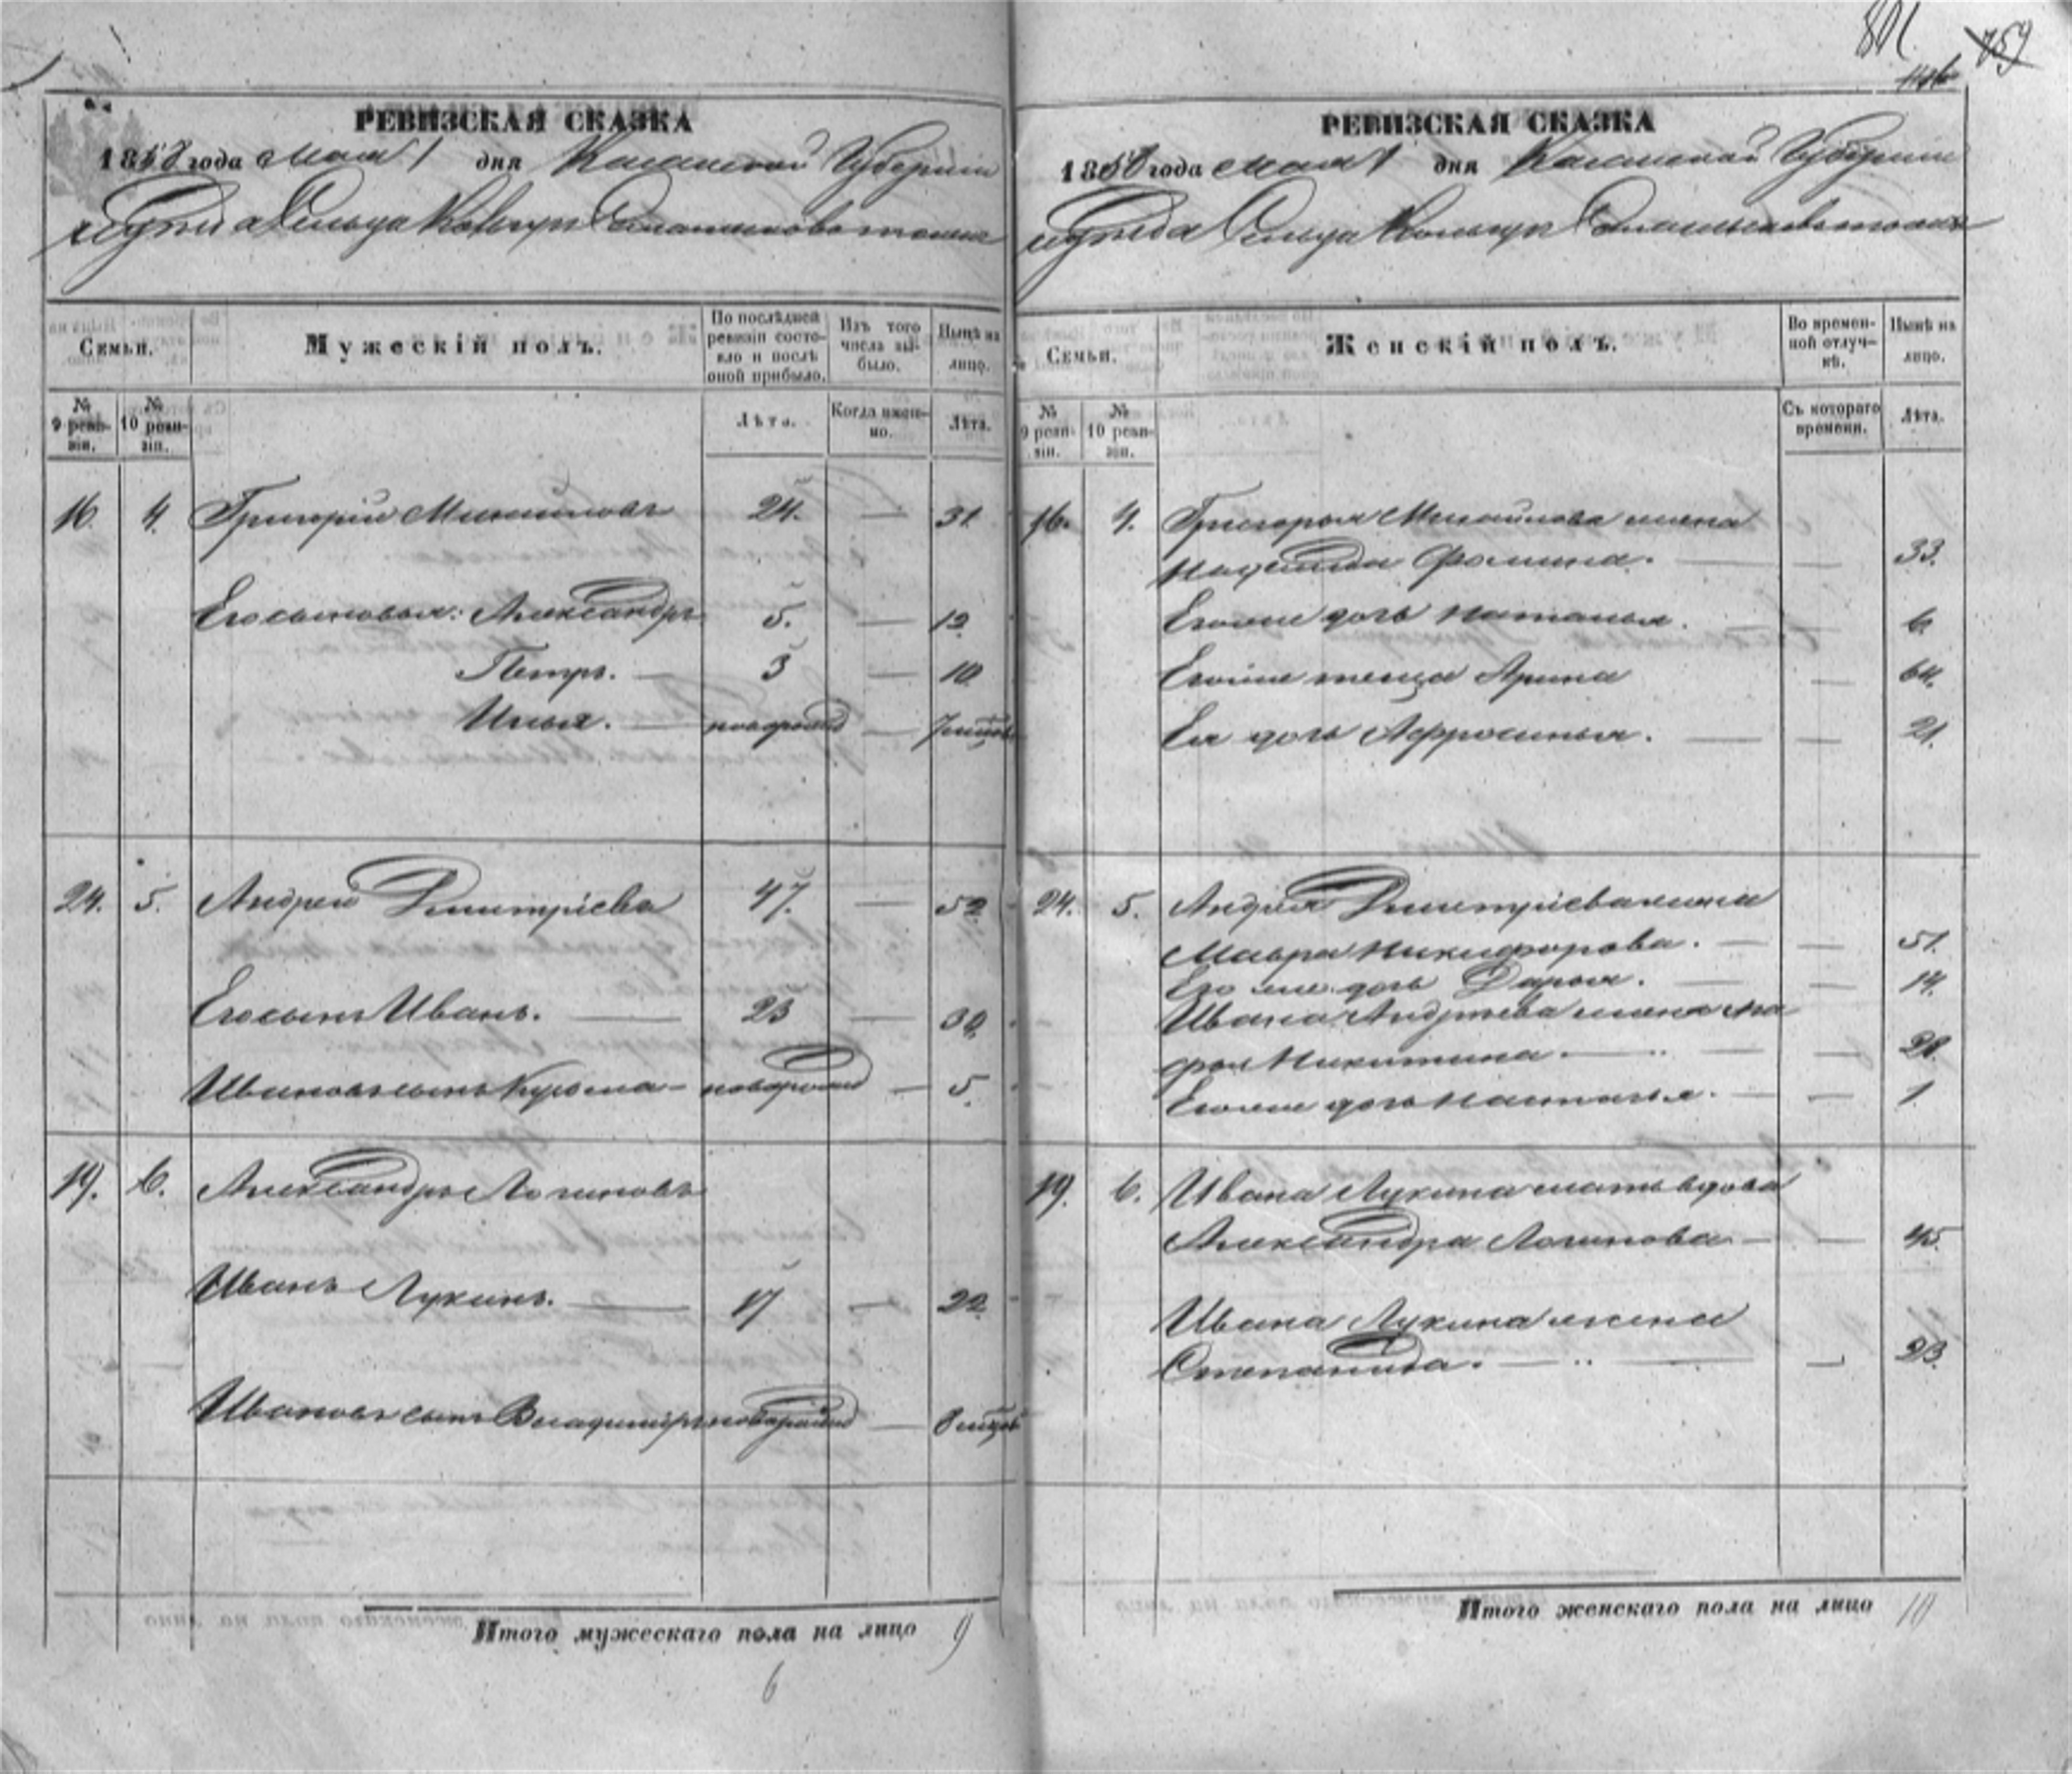 801
759
РЕВИЗСКАЯ СКАЗКА
1858 года Мая 1 дня Казанской Губерніи
уезда Сельца
Семьи.
Мужескій полъ.
По послѣдней ревизіи состояло и послѣ оной прибыло.
Изъ того числа выбыло.
Нынѣ на лицо.
№ 9 ревизіи.
№ 10 ревизіи.
Лѣта.
Когда именно.
Лѣта.
16. 4. Григорій Михайловъ 24. — 31
Его сыновья: Александръ 5. — 12
Петръ. — 3 — 10
Илья. — новорожд — 7 мѣсяц
24. 5. Андрей Дмитріевъ 47. — 52
Его сынъ Иванъ. — 23 — 30.
Ивановъ сынъ Кузьма — новорожд — 5.
19. 6. Александръ Логиновъ
Иванъ Лукинъ. — 17 — 22
Ивановъ сынъ Владиміръ новорожд — 8 мѣсяц
Итого мужескаго пола на лицо 9
6
РЕВИЗСКАЯ СКАЗКА
1858 года Мая 1 дня Казанской Губерніи
уезда Сельца
Семьи.
Женскій полъ.
Во временной отлучкѣ.
Нынѣ на лицо.
№ 9 ревизіи.
№ 10 ревизіи.
Съ котораго времени.
Лѣта.
16. 4. Григорья Михайлова жена
Надежда Фомина. — — 33.
Его же дочь Наталья. — 6.
Его же теща Арина — 64.
Ея дочь Афросинья. — — 21.
24. 5. Андрея Дмитріева жена
Мавра Никифорова. — — 51.
Его же дочь Дарья. — — 14.
Ивана Андреева жена Ма
фра Никитина. — — 28
Его же дочь Настасья. — — 1.
19. 6. Ивана Лукина мать вдова
Александра Логинова — — 45.
Ивана Лукина жена
Степанида. — — 23.
Итого женскаго пола на лицо 10